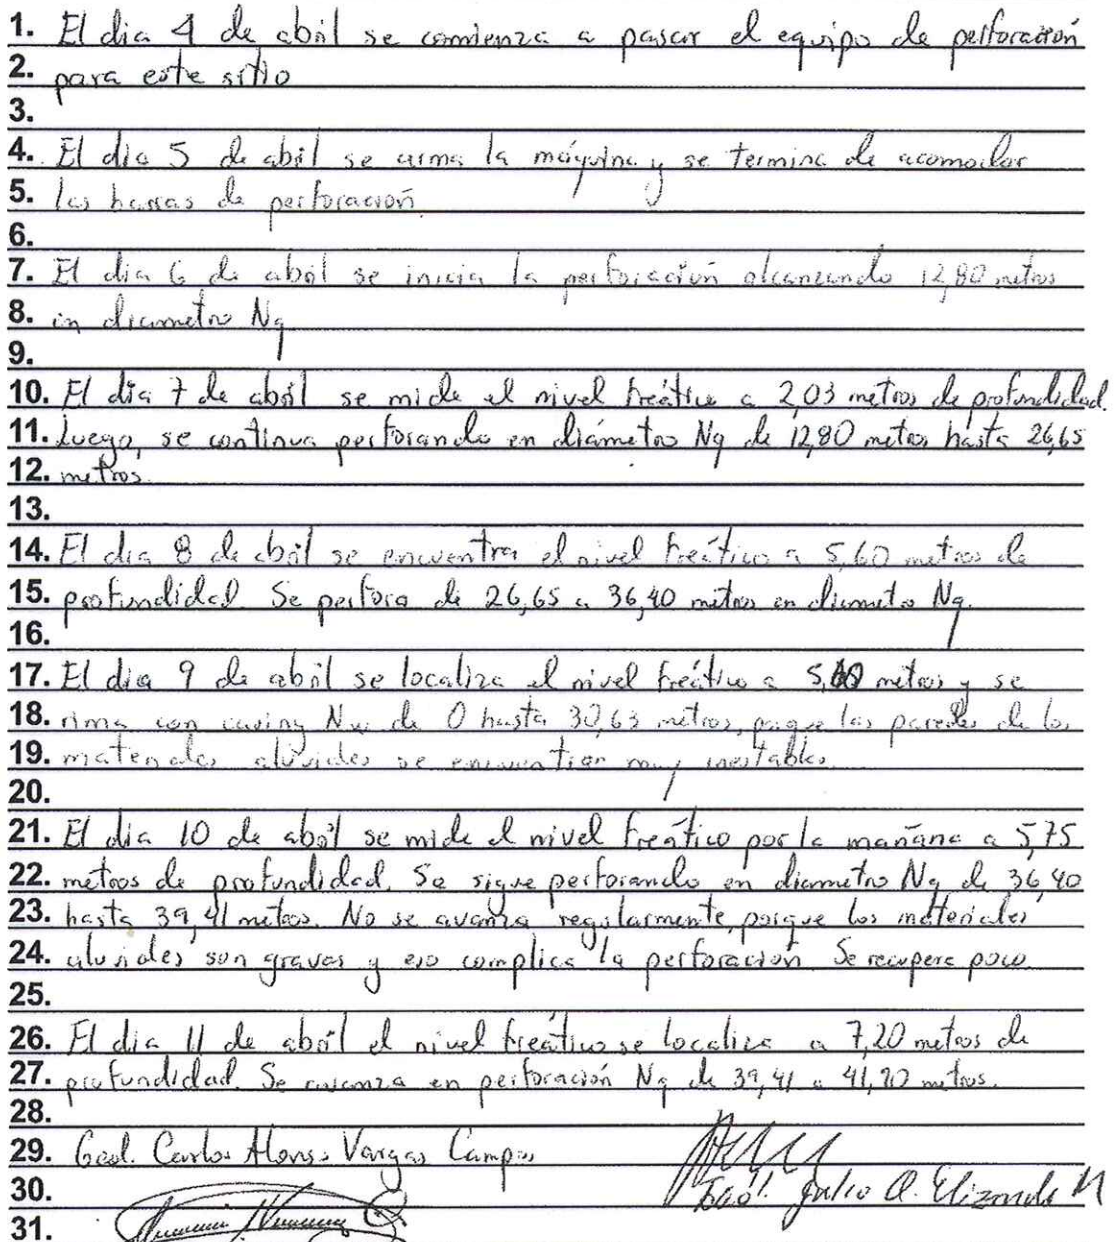 1. El dia 4 de abril se comienza a pasar el equipo de perforación
2. para este sitio
3.
4. El dia 5 de abril se arma la máquina y se termina de acomodar
5. las barras de perforación
6.
7. El dia 6 de abril se inicia la perforación alcanzando 12,80 metros
8. en diametro Nq
9.
10. El día 7 de abril se mide el nivel freático a 2,03 metros de profundidad.
11. Luego, se continua perforando en diámetro Nq de 12,80 metros hasta 26,65
12. metros.
13.
14. El dia 8 de abril se encuentra el nivel freático a 5,60 metros de
15. profundidad. Se perfora de 26,65 a 36,40 metros en diametro Nq.
16.
17. El dia 9 de abril se localiza el nivel freático a metros y se
18. rima con casing Nw de 0 hasta 30,63 metros, porque las paredes de los
19. materiales aluviales se encuentran muy inestables.
20.
21. El dia 10 de abril se mide el nivel freático por la mañana a 5,75
22. metros de profundidad. Se sigue perforando en diametro Nq de 36,40
23. hasta 39,41 metros. No se avanza regularmente, porque los materiales
24. aluviales son gravas y eso complica la perforación Se recupera poco.
25.
26. El dia 11 de abril el nivel freático se localiza a 7,20 metros de
27. profundidad. Se avanza en perforación Nq de 39,41 a 41,20 metros.
28.
29. Geol. Carlos Alonso Vargas Campos
30. Geól. Julio A. Elizondo M
31.